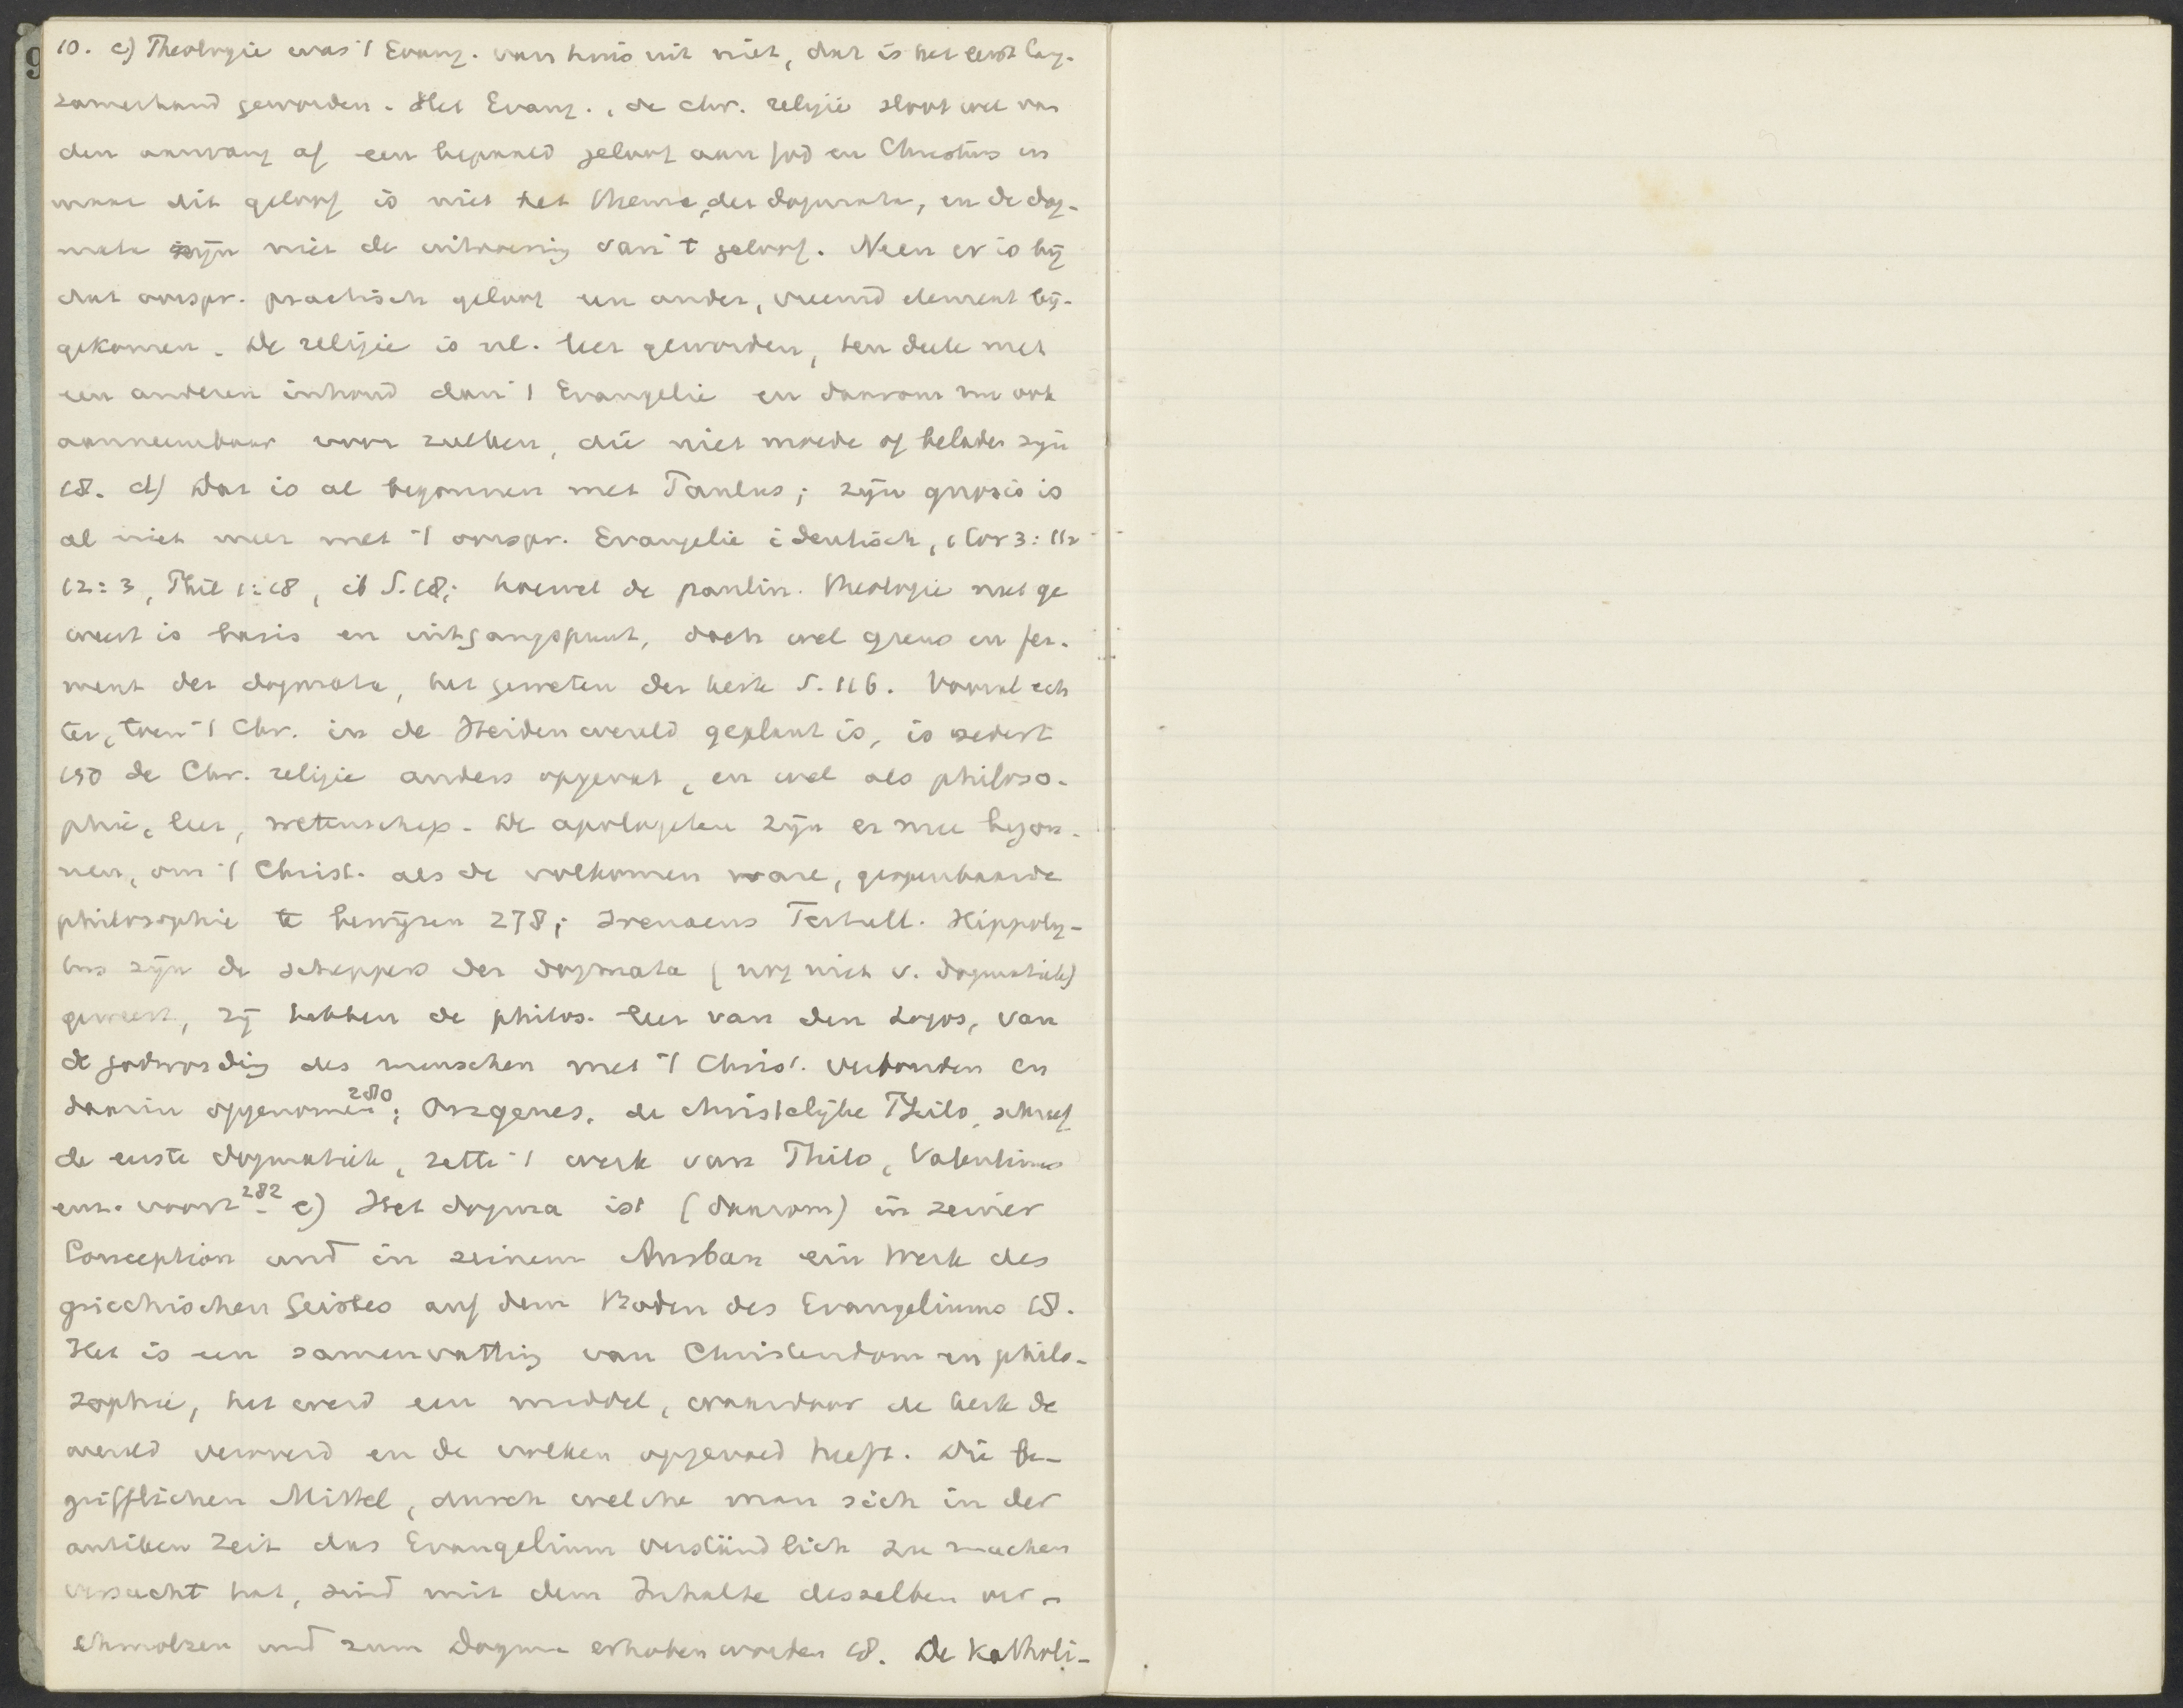 10. c) Theologie was 't Evang. van huis uit niet, dat is het eerst lang-
zamerhand geworden. Het Evang., de chr. religie sloot wel van
den aanvang af een bepaald geloof aan God en Christus in
maar dit geloof is niet het thema der dogmata, en de dog-
mata zijn niet de van 't geloof. Neen er is bij
dat oorspr. practisch geloof een ander, vreemd element bij-
gekomen. De religie is nl. leer geworden, ten deele met
een anderen inhoud dan 't Evangelie en daarom nu ook
aanneembaar voor zulken, die niet moede of beladen zijn
18. d) Dat is al begonnen met Paulus; zijn gnosis is
al niet meer met 't oorspr. Evangelie identisch, 1 Cor 3:11
12:3, Phil 1:18, ib S. 18; hoewel de paulin. theologie niet ge
weest is basis en uitgangspunt, doch wel grens en fer-
ment der dogmata, het geweten der kerk S. 116. Vooral ech
ter, toen 't Chr. in de Heidenwereld geplant is, is sedert
150 de Chr. religie anders opgevat, en wel als philoso-
phie, leer, wetenschap. De apologeten zijn er mee begon-
nen, om 't Christ. als de volkomen ware, geopenbaarde
philosophie te bewijzen 278; Irenaeus Tertull. Hippoly-
tus zijn de scheppers der dogmata (nog niet v. dogmatiek)
geweest, zij hebben de philos. leer van den Logos, van
de godwording des menschen met 't Christ. verbonden en
daarin opgenomen 280; Origenes, de christelijke Philo, schreef
de eerste dogmatiek, zette 't werk van Philo, Valentinus
enz. voort 282. e) Het dogma ist (daarom) in seiner
Conception und in seinem Ausbau ein Werk des
griechischen Geistes auf dem Boden des Evangeliums 18.
Het is een samenvatting van Christendom en philo-
sophie, het werd een middel, waardoor de kerk de
wereld veroverd en de volken opgevoed heeft. Die be-
grifflichen Mittel, durch welche man sich in der
antiken Zeit das Evangelium verständlich zu machen
versucht hat, sind mit dem Inhalte desselben ver-
schmolzen und zum Dogma erhoben worden 18. De Katholi-